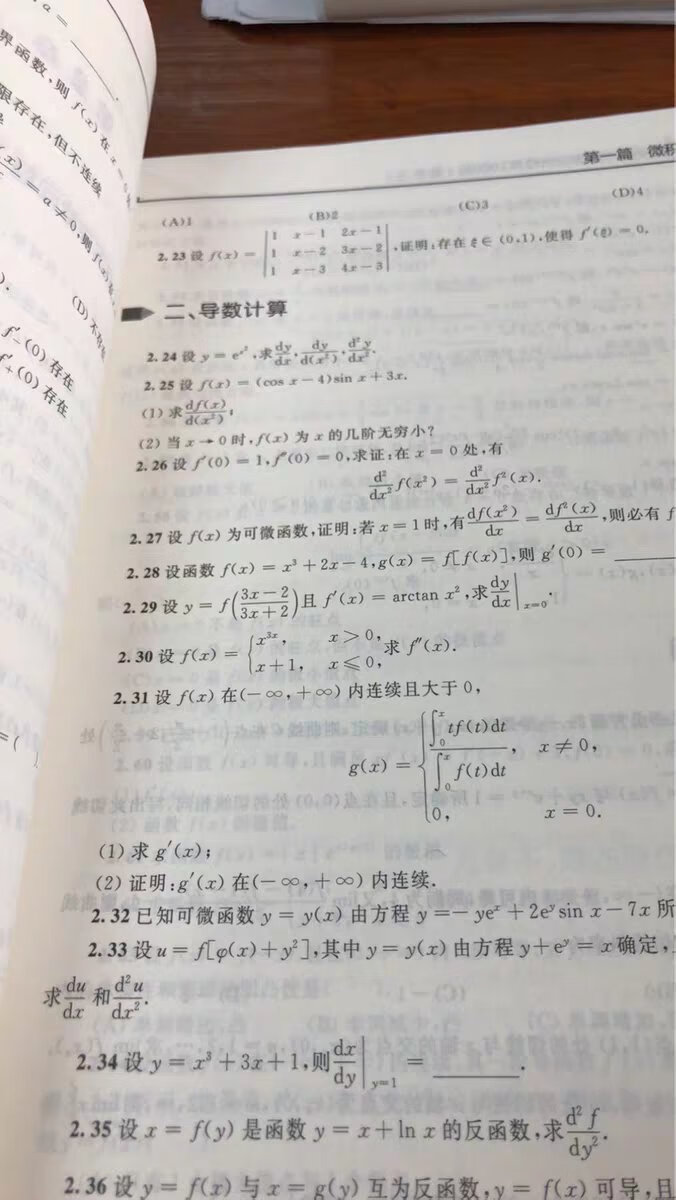 a = ______.
界函数,则 f(x) 在 x =
限存在,但不连续
= a ≠ 0,则 f(x)
(D) 不存在
f′₋(0) 存在
f′₊(0) 存在
第一篇 微积
(A)1 (B)2 (C)3 (D)4
2.23 设 f(x) = | 1 x−1 2x−1 ; 1 x−2 3x−2 ; 1 x−3 4x−3 |,证明:存在 ξ ∈ (0,1),使得 f′(ξ) = 0.
二、导数计算
2.24 设 y = e^{x²},求 dy/dx, dy/d(x²), d²y/dx².
2.25 设 f(x) = (cos x − 4)sin x + 3x.
(1) 求 df(x)/d(x²);
(2) 当 x → 0 时,f(x) 为 x 的几阶无穷小?
2.26 设 f′(0) = 1,f″(0) = 0,求证:在 x = 0 处,有
d²/dx² f(x²) = d²/dx² f²(x).
2.27 设 f(x) 为可微函数,证明:若 x = 1 时,有 df(x²)/dx = df²(x)/dx,则必有 f
2.28 设函数 f(x) = x³ + 2x − 4,g(x) = f[f(x)],则 g′(0) = ______
2.29 设 y = f((3x−2)/(3x+2)) 且 f′(x) = arctan x²,求 dy/dx |_{x=0}.
2.30 设 f(x) = { x^{3x}, x > 0, ; x + 1, x ≤ 0, 求 f″(x).
2.31 设 f(x) 在(−∞,+∞) 内连续且大于 0,
g(x) = { ∫₀ˣ tf(t)dt / ∫₀ˣ f(t)dt, x ≠ 0, ; 0, x = 0.
(1) 求 g′(x);
(2) 证明:g′(x) 在(−∞,+∞) 内连续.
2.32 已知可微函数 y = y(x) 由方程 y = − yeˣ + 2eʸ sin x − 7x 所
2.33 设 u = f[φ(x) + y²],其中 y = y(x) 由方程 y + eʸ = x 确定,
求 du/dx 和 d²u/dx².
2.34 设 y = x³ + 3x + 1,则 dx/dy |_{y=1} = ______.
2.35 设 x = f(y) 是函数 y = x + ln x 的反函数,求 d²f/dy².
2.36 设 y = f(x) 与 x = g(y) 互为反函数,y = f(x) 可导,且